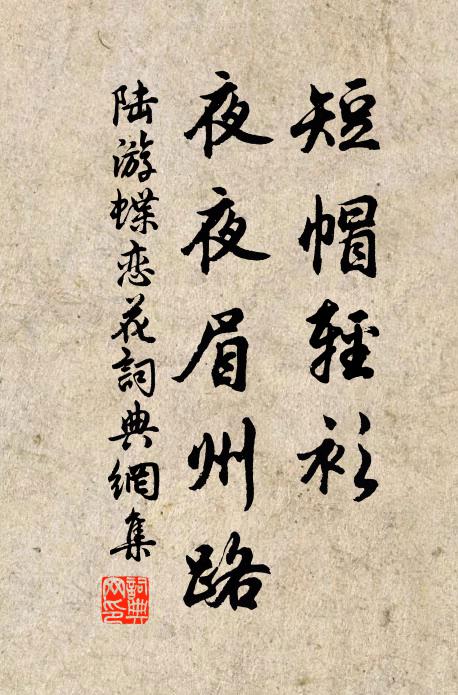 短帽輕衫
夜夜眉州路
陆游蝶恋花詞典網集
詞典